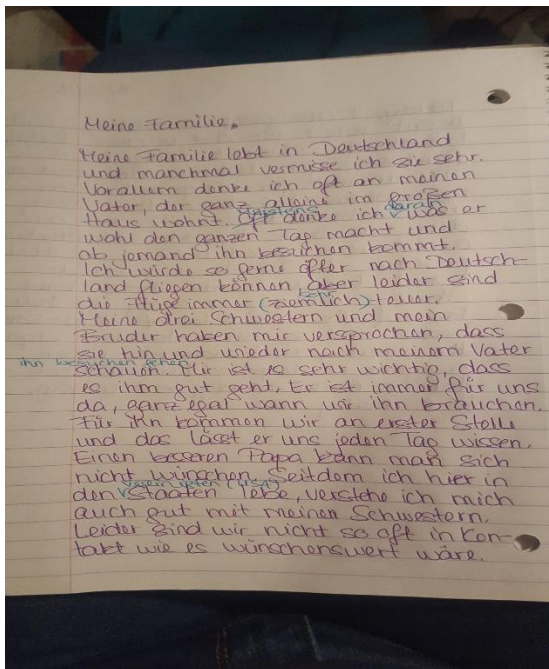 Meine Familie.
Meine Familie lebt in Deutschland
und manchmal vermisse ich sie sehr.
Vorallem denke ich oft an meinen
Vater, der ganz alleine im großen
Haus wohnt. Oft denke ich daran was er
wohl den ganzen Tag macht und
ob jemand ihn besuchen kommt.
Ich würde so gerne öfter nach Deutsch-
land fliegen können, aber leider sind
sehr
die Flüge immer (ziemlich) teuer.
Meine drei Schwestern und mein
Bruder haben mir versprochen, dass
sie hin und wieder nach meinem Vater
ihn besuchen gehen
schauen. Für ist es sehr wichtig, dass
es ihm gut geht. Er ist immer für uns
da, ganz egal wann wir ihn brauchen.
Für ihn kommen wir an erster Stelle
und das lässt er uns jeden Tag wissen.
Einen besseren Papa kann man sich
nicht wünschen. Seitdem ich hier in
Vereinigten (USA)
den Staaten lebe, verstehe ich mich
auch gut mit meinen Schwestern.
Leider sind wir nicht so oft in Kon-
takt wie es wünschenswert wäre.